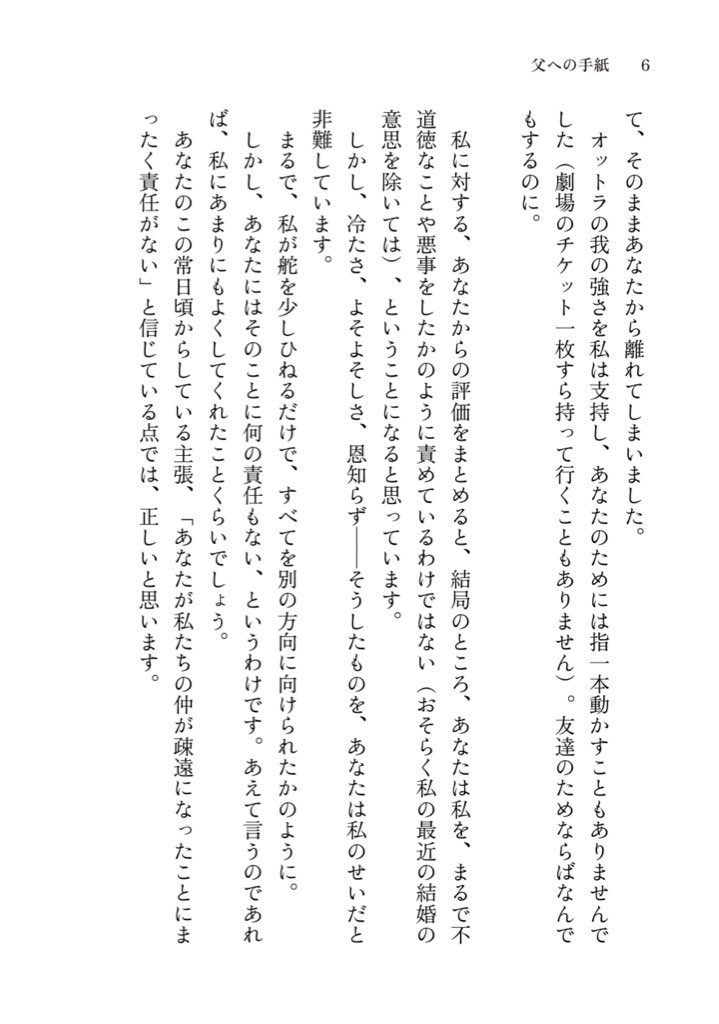 父への手紙 6
て、そのままあなたから離れてしまいました。
オットラの我の強さを私は支持し、あなたのためには指一本動かすこともありませんで
した（劇場のチケット一枚すら持って行くこともありません）。友達のためならばなんで
もするのに。
私に対する、あなたからの評価をまとめると、結局のところ、あなたは私を、まるで不
道徳なことや悪事をしたかのように責めているわけではない（おそらく私の最近の結婚の
意思を除いては）、ということになると思っています。
しかし、冷たさ、よそよそしさ、恩知らず――そうしたものを、あなたは私のせいだと
非難しています。
まるで、私が舵を少しひねるだけで、すべてを別の方向に向けられたかのように。
しかし、あなたにはそのことに何の責任もない、というわけです。あえて言うのであれ
ば、私にあまりにもよくしてくれたことくらいでしょう。
あなたのこの常日頃からしている主張、「あなたが私たちの仲が疎遠になったことにま
ったく責任がない」と信じている点では、正しいと思います。